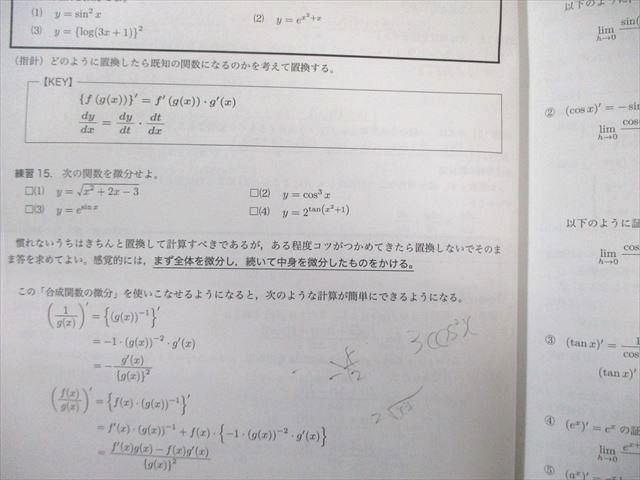 (1) y = sin² x
(2) y = e^{x²+x}
(3) y = {log(3x + 1)}²
(指針) どのように置換したら既知の関数になるのかを考えて置換する。
【KEY】
{f (g(x))}′ = f′ (g(x)) · g′(x)
dy/dx = dy/dt · dt/dx
練習 15. 次の関数を微分せよ。
□(1) y = √(x² + 2x − 3)
□(2) y = cos³ x
□(3) y = e^{sin x}
□(4) y = 2^{tan(x²+1)}
慣れないうちはきちんと置換して計算すべきであるが，ある程度コツがつかめてきたら置換しないでそのま
ま答を求めてよい。感覚的には，まず全体を微分し，続いて中身を微分したものをかける。
この「合成関数の微分」を使いこなせるようになると，次のような計算が簡単にできるようになる。
(1/g(x))′ = {(g(x))⁻¹}′
= −1 · (g(x))⁻² · g′(x)
= − g′(x)/{g(x)}²
(f(x)/g(x))′ = {f(x) · (g(x))⁻¹}′
= f′(x) · (g(x))⁻¹ + f(x) · {−1 · (g(x))⁻² · g′(x)}
= f′(x)g(x) − f(x)g′(x)/{g(x)}²
3cos²x
以下のように
lim h→0 sin(
② (cos x)′ = − sin
lim h→0 cos
以下のように証
lim h→0 cos
③ (tan x)′ = 1/cos
(tan x)′
④ (eˣ)′ = eˣ の証
lim h→0
⑤ (aˣ)′ =